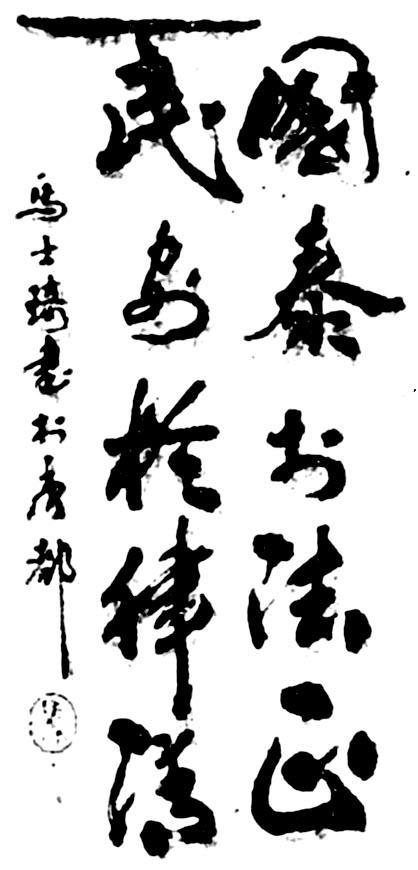 國泰於法正
民安於律清
馬士琦書於唐都